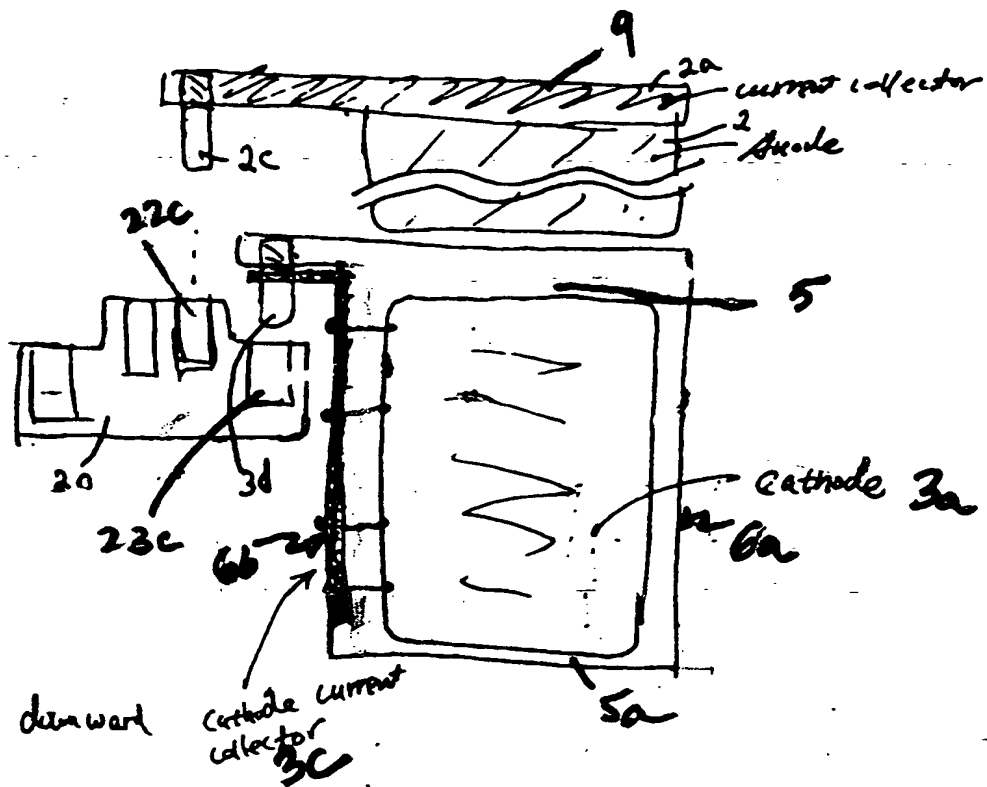 9
2a
current collector
2
Anode
2c
22c
5
20
3d
cathode 3a
23c
6b
6a
5a
downward
cathode current
collector
3c